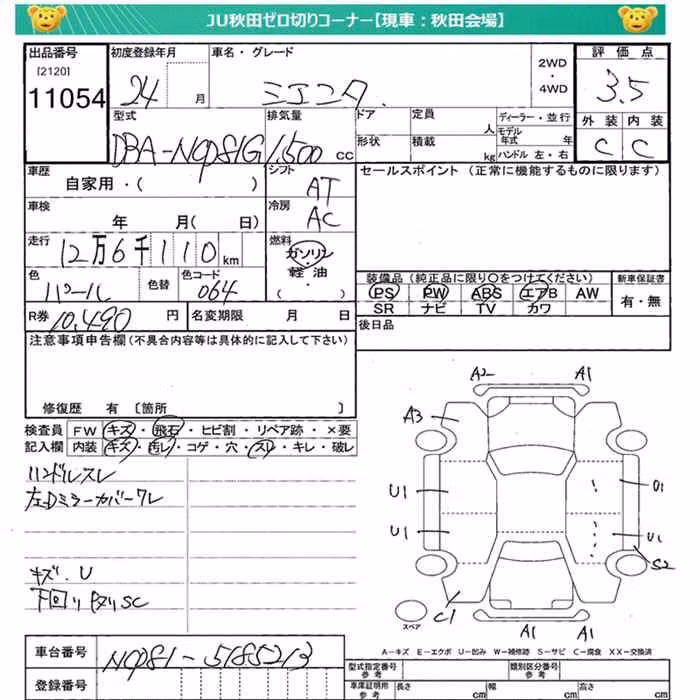 JU秋田ゼロ切りコーナー【現車：秋田会場】
出品番号 初度登録年月 車名・グレード 2WD・4WD 評価点
[2120]
11054 24 月 シエンタ 3.5
型式 排気量 ドア 定員 人 ディーラー・並行 外装 内装
DBA-NCP81G 1,500 cc 形状 積載 kg モデル年式 年 ハンドル 左・右 C C
車歴 シフト セールスポイント（正常に機能するものに限ります）
自家用・（ ） AT
車検 冷房
年 月（ 日） AC
走行 燃料
12万6千110 km ガソリン・軽油・（ ）
色 色替 色コード 装備品（純正品に限り○をつけてください） 新車保証書
パール 064 PS PW ABS エアB AW 有・無
SR ナビ TV カワ
R券 10,490 円 名変期限 月 日 後日品
注意事項申告欄（不具合内容等は具体的に記入して下さい）
修復歴 有 〔箇所 〕
検査員 FW キズ・飛石・ヒビ割・リペア跡・×要
記入欄 内装 キズ・汚レ・コゲ・穴・スレ・キレ・破レ
ハンドルスレ
左Dミラーカバーワレ
キズ.U
下回りサビSC
A2 A1
A3
U1
U1
U1
S2
C1
A1 A1
スペア
A－キズ E－エクボ U－凹み W－補修跡 S－サビ C－腐食 XX－交換済
車台番号 NCP81-5185213 型式指定番号 参考 類別区分番号 参考
登録番号 車庫証明用 参考 長さ cm 幅 cm 高さ cm